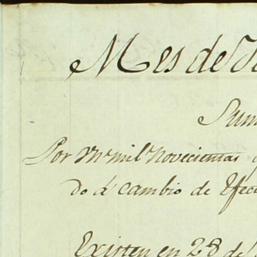 Mes de
Sum
Por un mil novecientas
do á cambio de Efec
Existen en 28 de